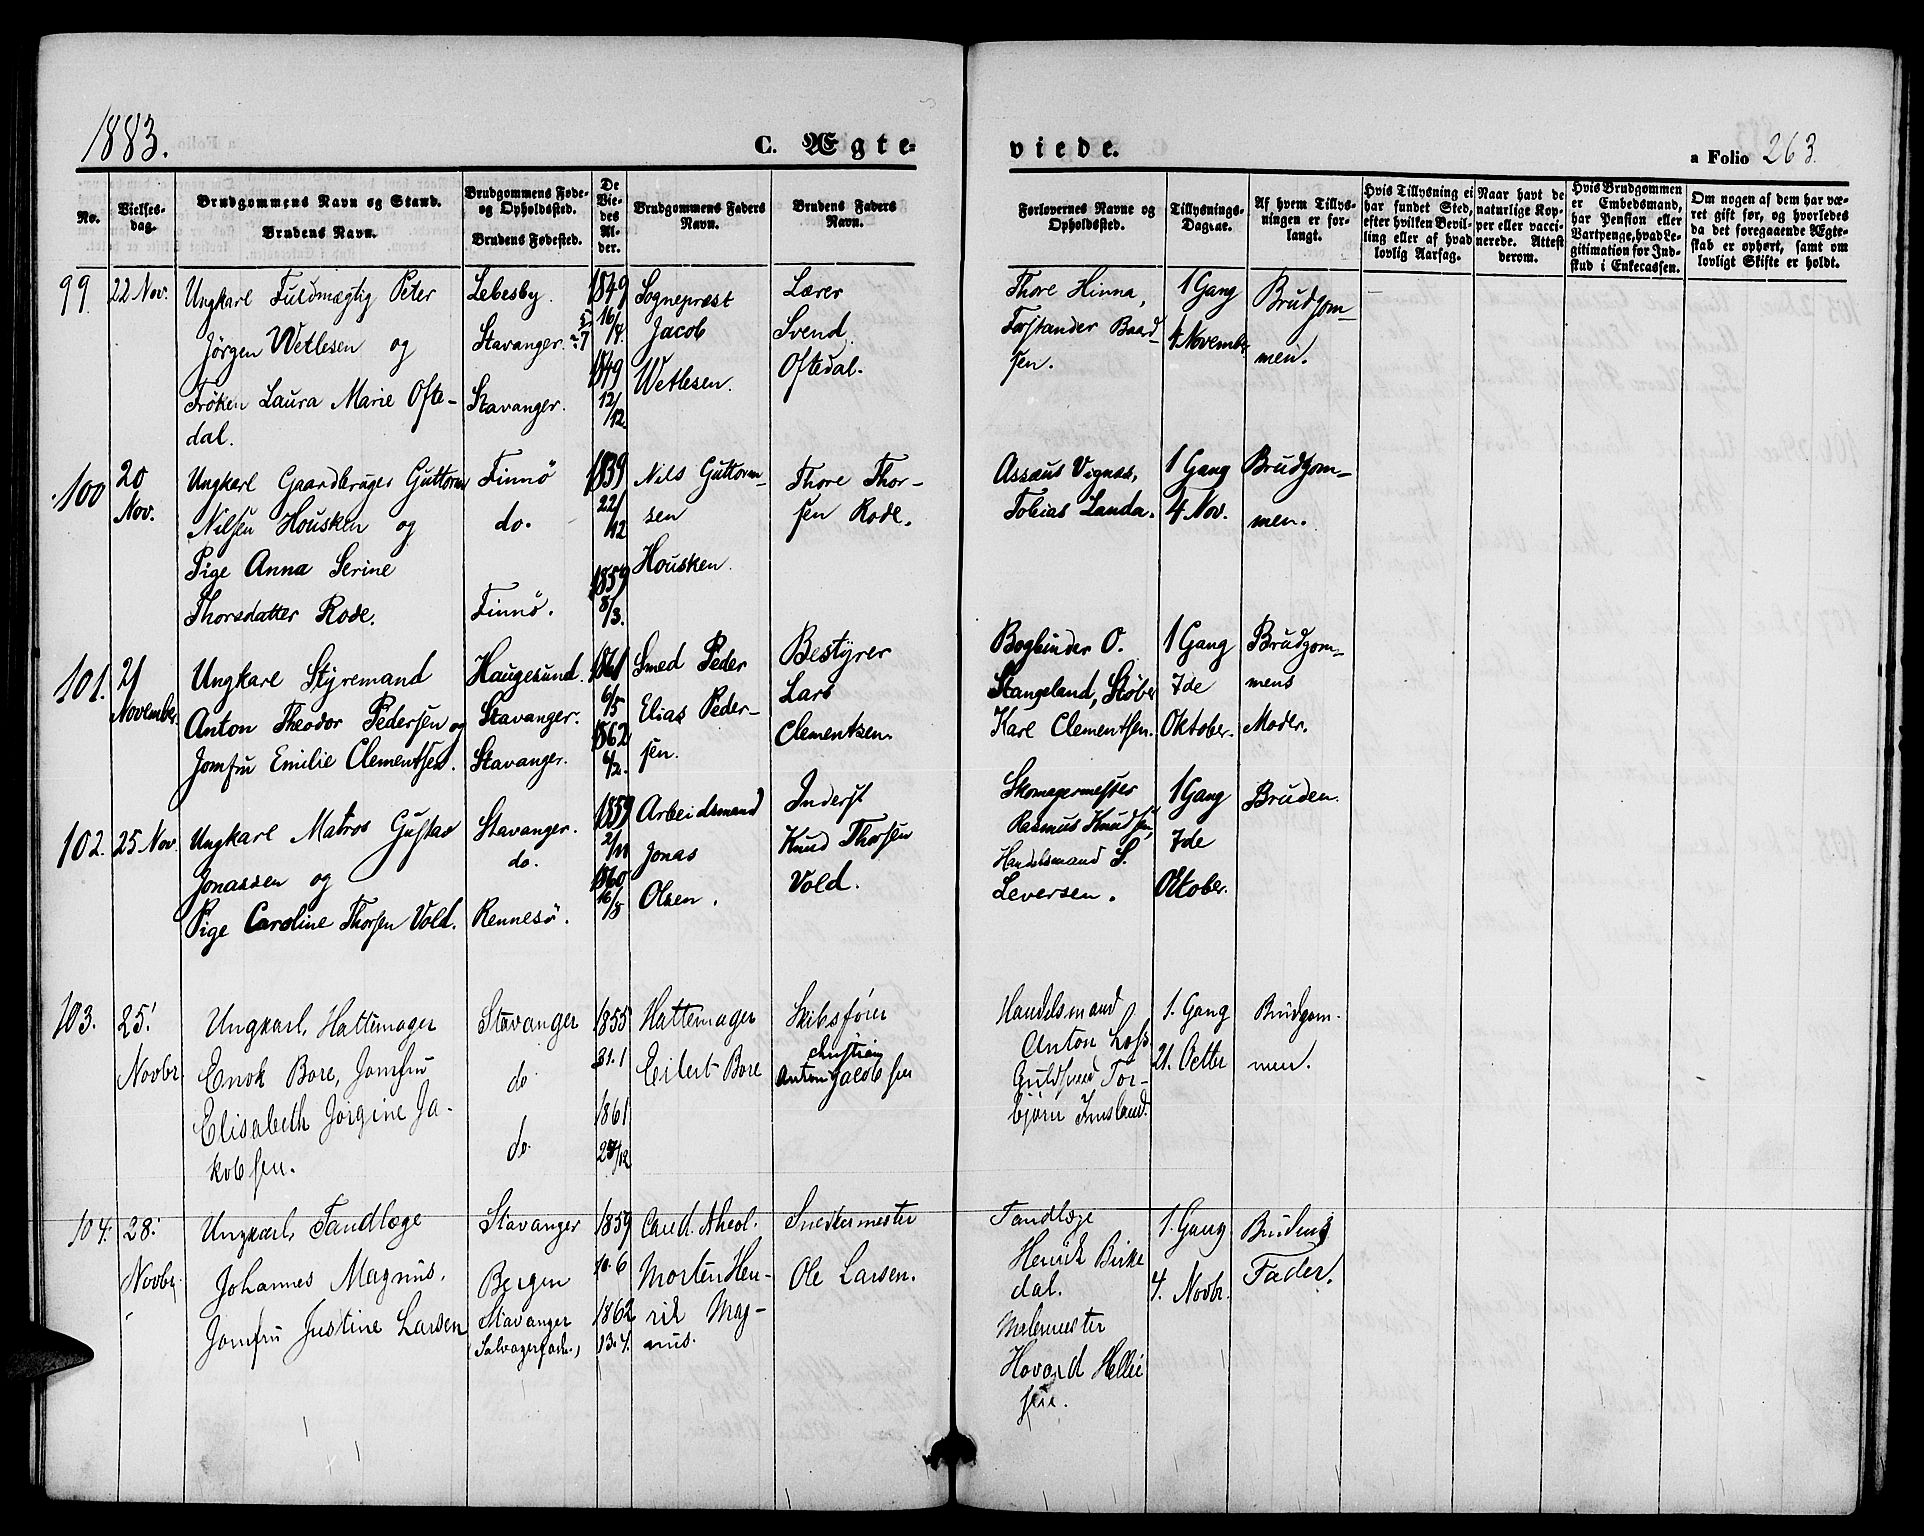 1883.
C. Ægte-
viede.
a Folio 263.
No.
Vielses-
dag.
Brudgommens Navn og Stand.
Brudens Navn.
Brudgommens Føde-
og Opholdssted.
Brudens Fødested.
De
Vie-
des
Al-
der.
Brudgommens Faders
Navn.
Brudens Faders
Navn.
Forlovernes Navne og
Opholdssted.
Tillysnings-
Dagene.
Af hvem Tillys-
ningen er for-
langt.
Hvis Tillysning ei
har fundet Sted,
efter hvilken Bevil-
ling eller af hvad
lovlig Aarsag.
Naar havt de
naturlige Kop-
per eller vacci-
nerede. Attest
derom.
Hvis Brudgommen
er Embedsmand,
har Pension eller
Vartpenge, hvad Le-
gitimation for Ind-
skud i Enkecassen.
Om nogen af dem har væ-
ret gift før, og hvorledes
da det foregaaende Ægte-
skab er ophørt, samt om
lovligt Skifte er holdt.
99.
22 Nov.
Ungkarl Fuldmægtig Peter
Jörgen Wetlesen og
Fröken Laura Marie Ofte-
dal.
Lebesby.
Stavanger.
Stavanger.
1849
16/4.
1849
12/12.
Sogneprest
Jacob
Wetlesen.
Lærer
Svend
Oftedal.
Thore Hinna,
Forstander Baard-
sen.
1 Gang
4 November
Brudgom-
men.
100
20
Nov.
Ungkarl Gaardbruger Guttorm
Nilsen Housken og
Pige Anna Serine
Thorsdatter Rode.
Finnö
do.
Finnö.
1839
22/12
1859
8/3.
Nils Guttorm-
sen
Housken.
Thore Thor-
sen Rode.
Assaus Vignæs,
Tobias Landa.
1 Gang
4 Nov.
Brudgom-
men.
101.
21
November.
Ungkarl Styremand
Anton Theodor Pedersen og
Jomfru Emilie Clementsen.
Haugesund.
Stavanger.
Stavanger.
1861
6/5
1862
6/2.
Smed Peder
Elias Peder-
sen.
Bestyrer
Lars
Clementsen.
Bogbinder O.
Stangeland, Støber
Karl Clementsen.
1 Gang
7de
Oktober.
Brudgom-
mens
Moder.
102.
25 Nov.
Ungkarl Matros Gustav
Jonassen og
Pige Caroline Thorsen Vold.
Stavanger.
do.
Rennesö.
1859
2/11
1860
16/8
Arbeidsmand
Jonas
Olsen.
Inderst
Knud Thorsen
Vold.
Skomagermester
Rasmus Knudsen,
Handelsmand S.
Leversen.
1 Gang
7de
Oktober.
Bruden.
103.
25.
Novbr
Ungkarl, Hattemager
Enok Bore, Jomfru
Elisabeth Jörgine Ja-
kobsen.
Stavanger
do
do
1855
31.1
1861
28/12
Hattemager
Eilert Bore
Skibsfører
Christian
Anton Jacobsen
Handelsmand
Anton Lohs
Guldsmed Tor-
björn Imsland.
1. Gang
21. Octbr
Brudgom-
men.
104.
28.
Novbr.
Ungkarl, Tandlæge
Johannes Magnus.
Jomfru Justine Larsen
Stavanger
Bergen
Stavanger
1859
10.6
1862
13.4.
Cand. theol.
Morten Hen-
rik Mag-
nus.
Snedkermester
Ole Larsen.
Tandlæge
Henrik Birke
dal.
Malermester
Hovard Hellie
sen.
1. Gang
4. Novbr.
Brudens
Fader.